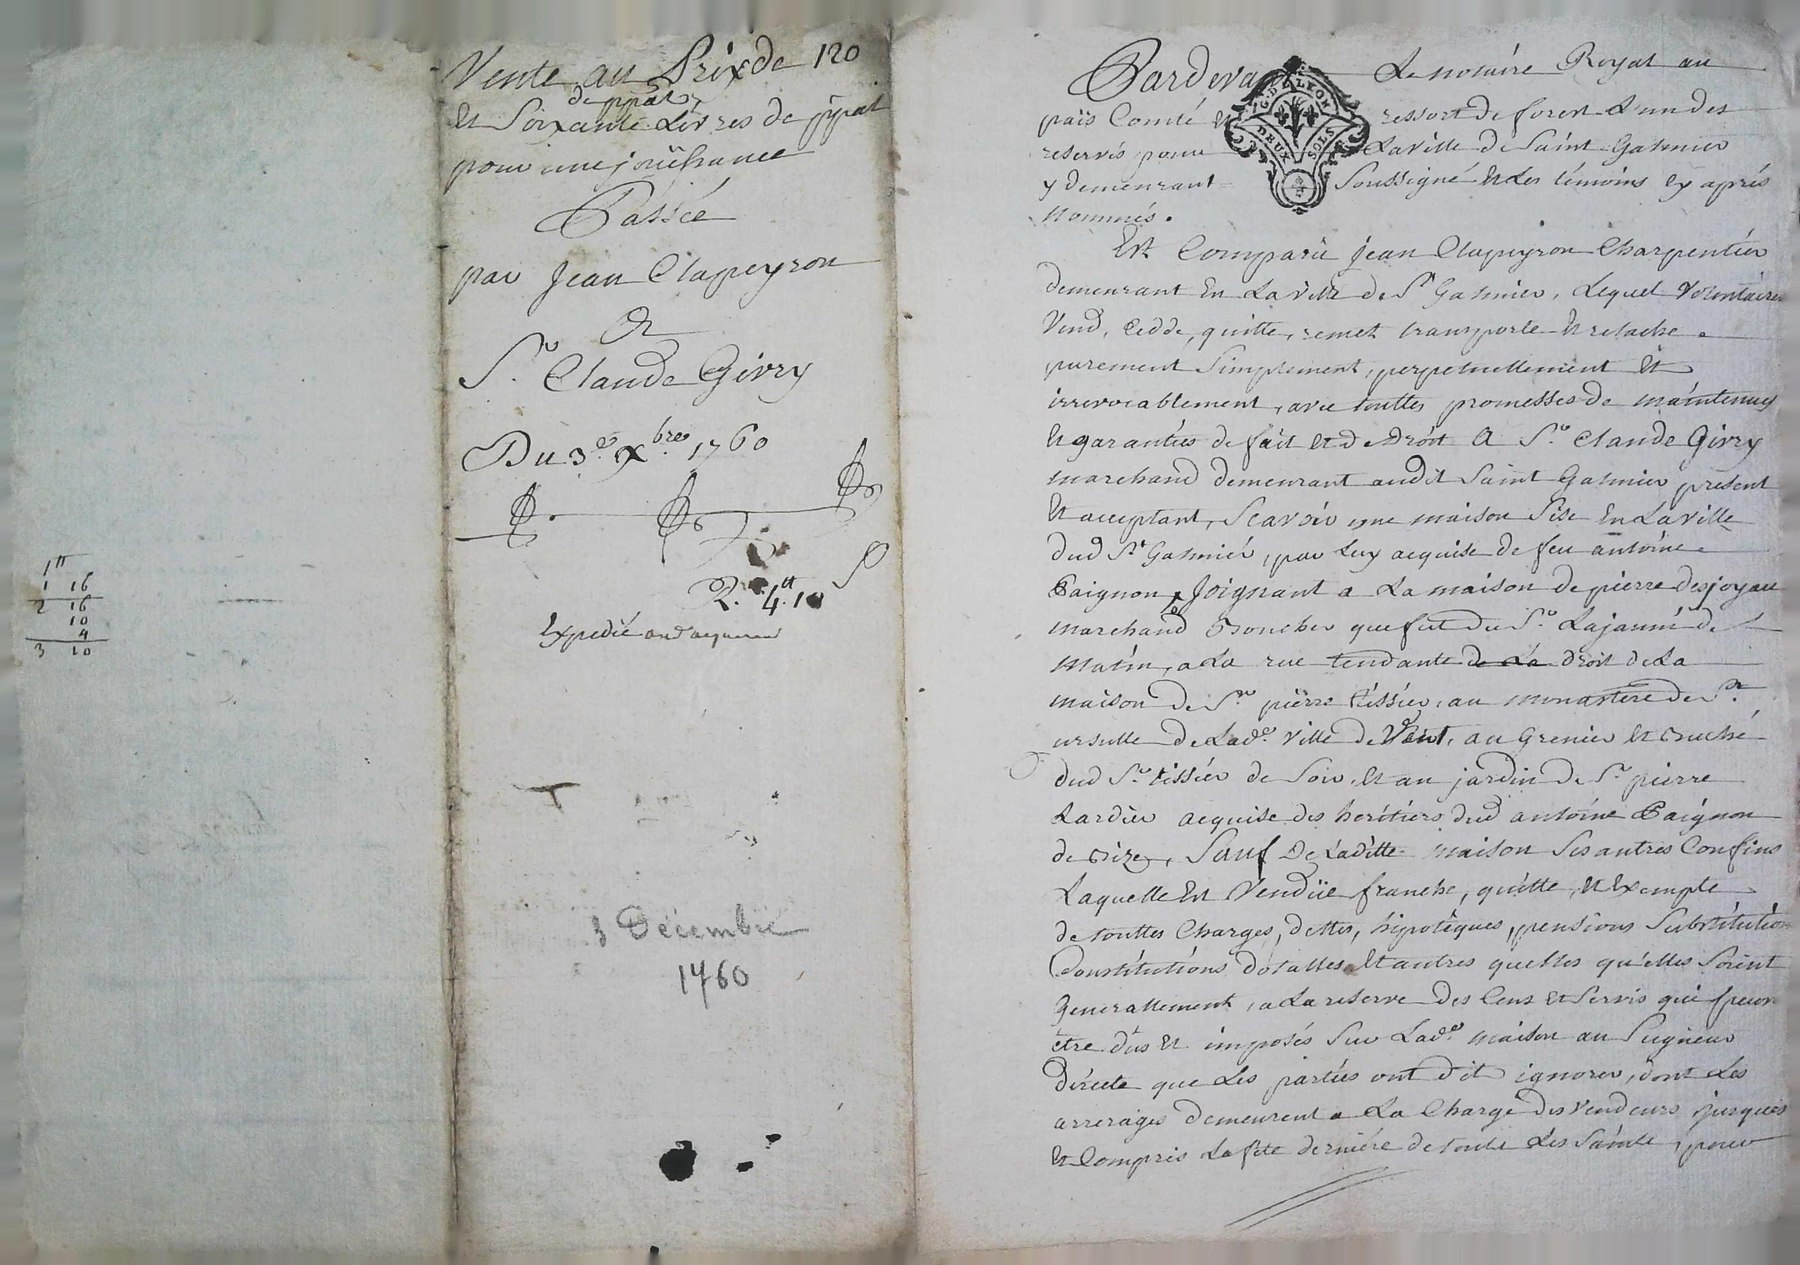 1 16
2 16
10
4
3 10
Vente au Prix de 120
de ppal
Et Soixante Livres de ppal
pour une joüissance
Passée
par Jean Clapeyron
A
S.r Claude Givry
Du 3.e Xbre 1760
2. 4.tt 10
Expedié aud acquereur
3 Décembre
1760
Pardevant Le notaire Royal au
païs Comté et ressort de forest L'un des
reservés pour La ville de Saint Galmier
y demeurant Soussigné Et Les témoins cy aprés
nommés.
Est Comparu Jean Clapeyron Charpentier
demeurant En La ville de St Galmier, Lequel Volontaire
Vend, Cedde, quitte, remet transporte Et relache
purement Simplement, perpetuellement Et
irrevocablement, avec touttes promesses de maintenuës
Et garanties de fait et de droit A S.r Claude Givry
marchand demeurant audit Saint Galmier présent
Et acceptant, Scavoir une maison Sise En La ville
dud St Galmier, par Luy acquise de feu antoine
Paignon Joignant a La maison de pierre desjoyau
marchand Boucher que fut du S.r Lajaunié de
matin, a La rue tendante de La droit de La
maison de S.r pierre tissier, au monastere de Ste
ursulle de Lad.e ville de Vent, au Grenier Et Cuché
dud S.r tissier de Soir, Et au jardin de S.r pierre
Lardier acquise des heritiers dud antoine Paignon
de bize, Sauf De Laditte maison Ses autres Confins
Laquelle Est Vendüe franche, quitte, Et Exempte
de touttes Charges, dettes, hipotèques, pensions Substitution
Constitutions dotalles Et autres quelles qu'elles Soient
generallement, a La reserve des Cens Et Servis qui peuv
être dûs Et imposés Sur Lad.e maison au Seigneur
directe que Les parties ont dit ignorer, dont Les
arrerages demeurent a La Charge des Vendeurs jusques
Et Compris La fête derniére de toute Les Sainte, pour